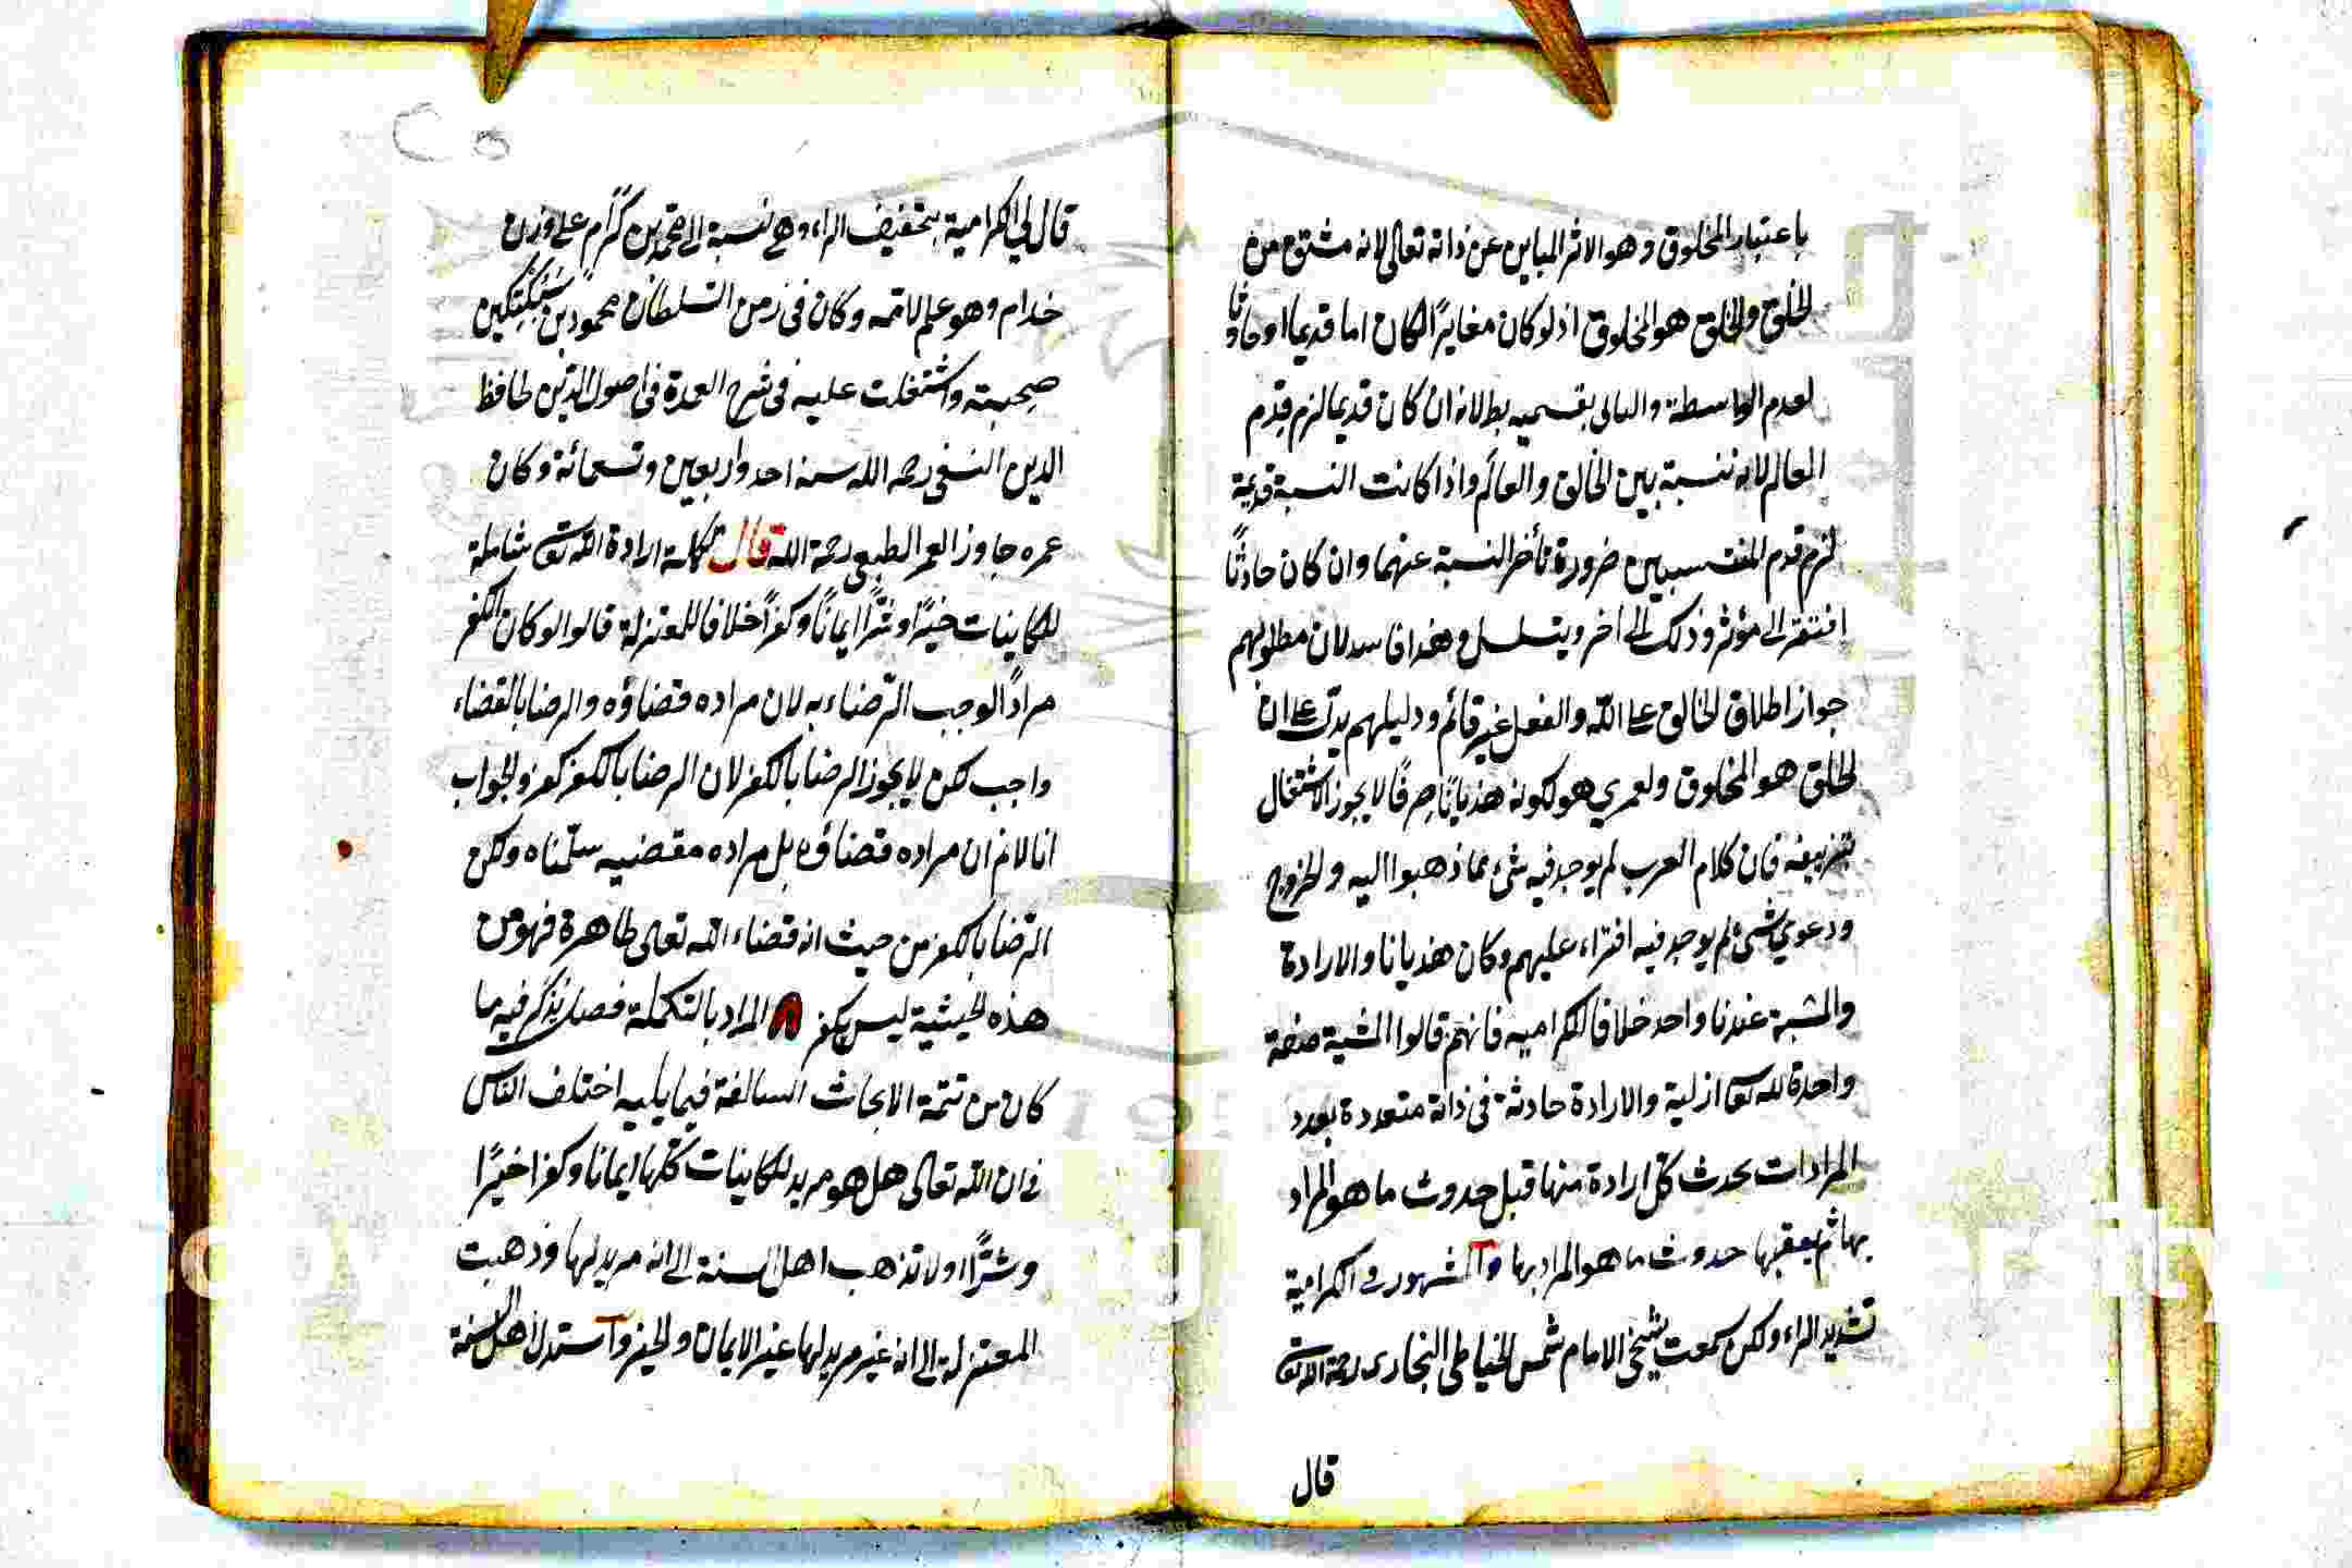 باعتبار المخلوق وهو الاثر المباين عن ذاته تعالى لانه مشتق من
الخلق والخلق هو المخلوق اذ لو كان مغايرًا لكان اما قديما او حادثا
لعدم الواسطة والتالى بقسميه بط لانه ان كان قديما لزم قدم
العالم لانه نسبة بين الخالق والعالم واذا كانت النسبة قديمة
لزم قدم المنتسبين ضرورة تأخر النسبة عنهما وان كان حادثًا
افتقر الى مؤثر وذلك الى اخر ويتسلسل وهذا فاسد لان مطلوبهم
جواز اطلاق الخالق على الله والفعل غير قائم ودليلهم يدل على ان
الخلق هو المخلوق ولعمري هو لكونه هذيانًا صرفًا لا يجوز الاشتغال
بتزييفه فان كلام العرب لم يوجد فيه شئ مما ذهبوا اليه والخروج
ودعوي شئ لم يوجد فيه افتراء عليهم وكان هذيانا والارادة
والمشية عندنا واحد خلافا للكراميه فانهم قالوا المشية صفة
واحدة لله تع ازلية والارادة حادثة فى ذاته متعددة بعدد
المرادات تحدث كل ارادة منها قبل حدوث ما هو المراد
بها ثم يعقبها حدوث ما هو المراد بها والمشهور فى الكرامية
تشديد الراء ولكن سمعت شيخى الامام شمس الخياطى البخارى رحمة الله تع
قال
قال لي الكرامية بتخفيف الراء وهى نسبة الى محمد بن كرام على وزن
خدام وهو علم لامه وكان فى زمن السلطان محمود بن سبكتكين
صحبته واشتغلت عليه فى شرح العمدة فى اصول الدين لحافظ
الدين النسفى رحمه الله سنة احد واربعين وتسعمائة وكان
عمره جاوز العمر الطبيعى رحمة الله قال تكملة ارادة الله تع شاملة
للكاينات خيرًا وشرًا ايمانًا وكفرًا خلافا للمعتزلة قالوا لو كان الكفر
مرادًا لوجب الرضاء به لان مراده قضاؤه والرضا بالقضاء
واجب لكن لا يجوز الرضا بالكفر لان الرضا بالكفر كفر والجواب
انا لا نم ان مراده قضاؤه بل مراده مقضيه سلمناه ولكن
الرضا بالكفر من حيث انه قضاء الله تعالى طاهرة فهو من
هذه الحيثية ليس بكفر المراد بالتكملة فصل يذكر فيه ما
كان من تتمة الابحاث السالفة فيما يليه اختلف الناس
فى ان الله تعالى هل هو مريد للكاينات كلها ايمانا وكفرا خيرًا
وشرًا او لا تذهب اهل السنة الى انه مريد لها وذهبت
المعتزلة الى انه غير مريد لها غير الايمان والخير واستدل اهل السنة